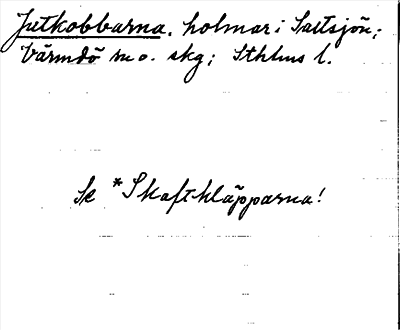 Jutkobbarna, holmar i Saltsjön;
Värmdö sn o. skg; Sthlms l.
Se *Skaftkläpparna!